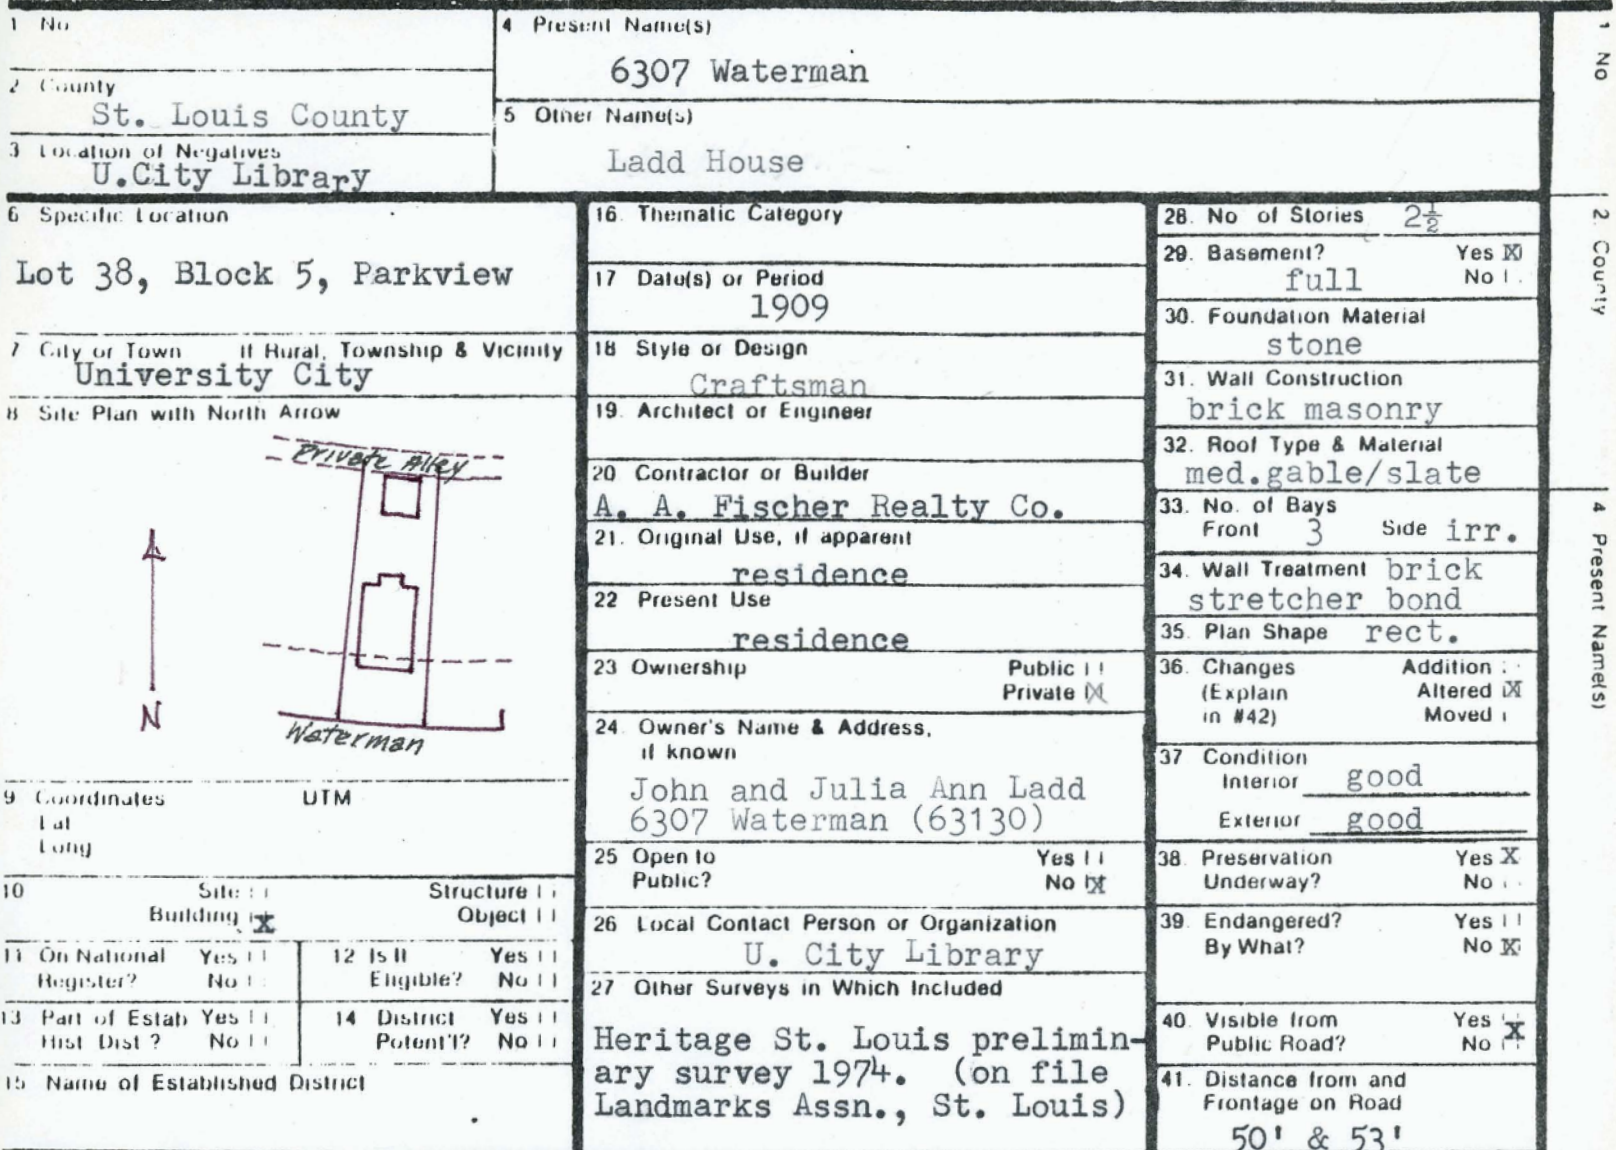 1 No
4 Present Name(s)
6307 Waterman
2 County
St. Louis County
5 Other Name(s)
Ladd House
3 Location of Negatives
U.City Library
6 Specific Location
Lot 38, Block 5, Parkview
7 City or Town If Rural, Township & Vicinity
University City
8 Site Plan with North Arrow
Private Alley
N
Waterman
9 Coordinates UTM
Lat
Long
10 Site Structure
Building X Object
11 On National Register? Yes No
12 Is It Eligible? Yes No
13 Part of Estab Hist Dist? Yes No
14 District Potent'l? Yes No
15 Name of Established District
16. Thematic Category
17 Date(s) or Period
1909
18 Style or Design
Craftsman
19. Architect or Engineer
20 Contractor or Builder
A. A. Fischer Realty Co.
21. Original Use, if apparent
residence
22 Present Use
residence
23 Ownership Public
Private X
24 Owner's Name & Address,
if known
John and Julia Ann Ladd
6307 Waterman (63130)
25 Open to Yes
Public? No X
26 Local Contact Person or Organization
U. City Library
27 Other Surveys in Which Included
Heritage St. Louis prelimin-
ary survey 1974. (on file
Landmarks Assn., St. Louis)
28. No of Stories 2½
29. Basement? Yes X
full No
30. Foundation Material
stone
31. Wall Construction
brick masonry
32. Roof Type & Material
med.gable/slate
33. No. of Bays
Front 3 Side irr.
34. Wall Treatment brick
stretcher bond
35. Plan Shape rect.
36. Changes Addition
(Explain Altered X
in #42) Moved
37 Condition
Interior good
Exterior good
38. Preservation Yes X
Underway? No
39. Endangered? Yes
By What? No X
40. Visible from Yes X
Public Road? No
41. Distance from and
Frontage on Road
50' & 53'
1 No
2. County
4 Present Name(s)